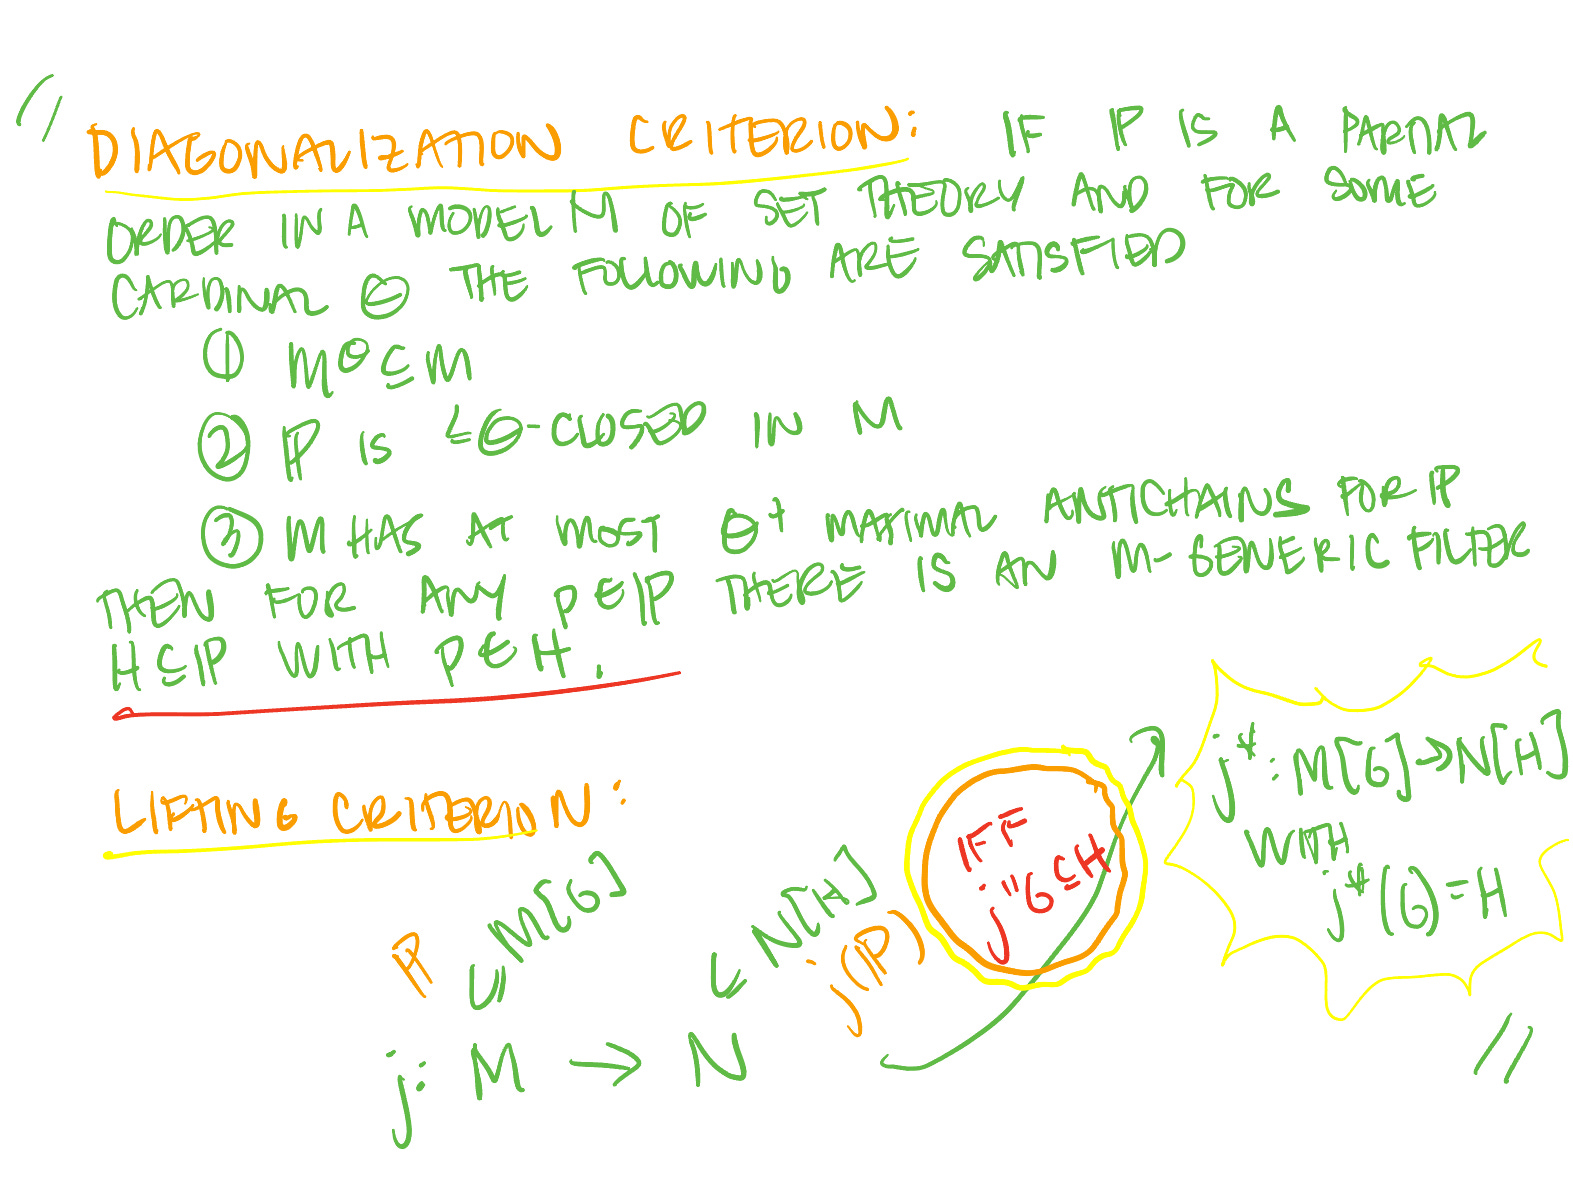 "
DIAGONALIZATION CRITERION: IF ℙ IS A PARTIAL
ORDER IN A MODEL M OF SET THEORY AND FOR SOME
CARDINAL θ THE FOLLOWING ARE SATISFIED
① M^θ ⊆ M
② ℙ IS ≤θ-CLOSED IN M
③ M HAS AT MOST θ⁺ MAXIMAL ANTICHAINS FOR ℙ
THEN FOR ANY p∈ℙ THERE IS AN M-GENERIC FILTER
H⊆ℙ WITH p∈H.
LIFTING CRITERION:
ℙ ⊆ M[G]
⊆ N[H] j(ℙ)
j: M → N
IFF
j"G⊆H
j*: M[G]→N[H]
WITH
j*(G)=H
"